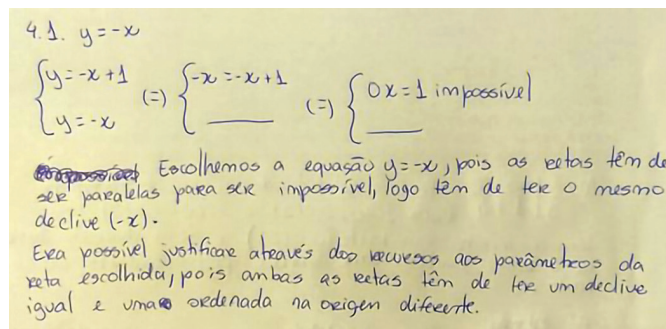 4.1. y=-x
{y=-x+1 (=) {-x=-x+1 (=) {0x=1 impossível
{y=-x
Escolhemos a equasão y=-x, pois as retas têm de
ser paralelas para ser impossível, logo têm de ter o mesmo
declive (-x).
Era possível justificar através dos recursos aos parâmetros da
reta escolhida, pois ambas as retas têm de ter um declive
igual e uma ordenada na origen diferente.